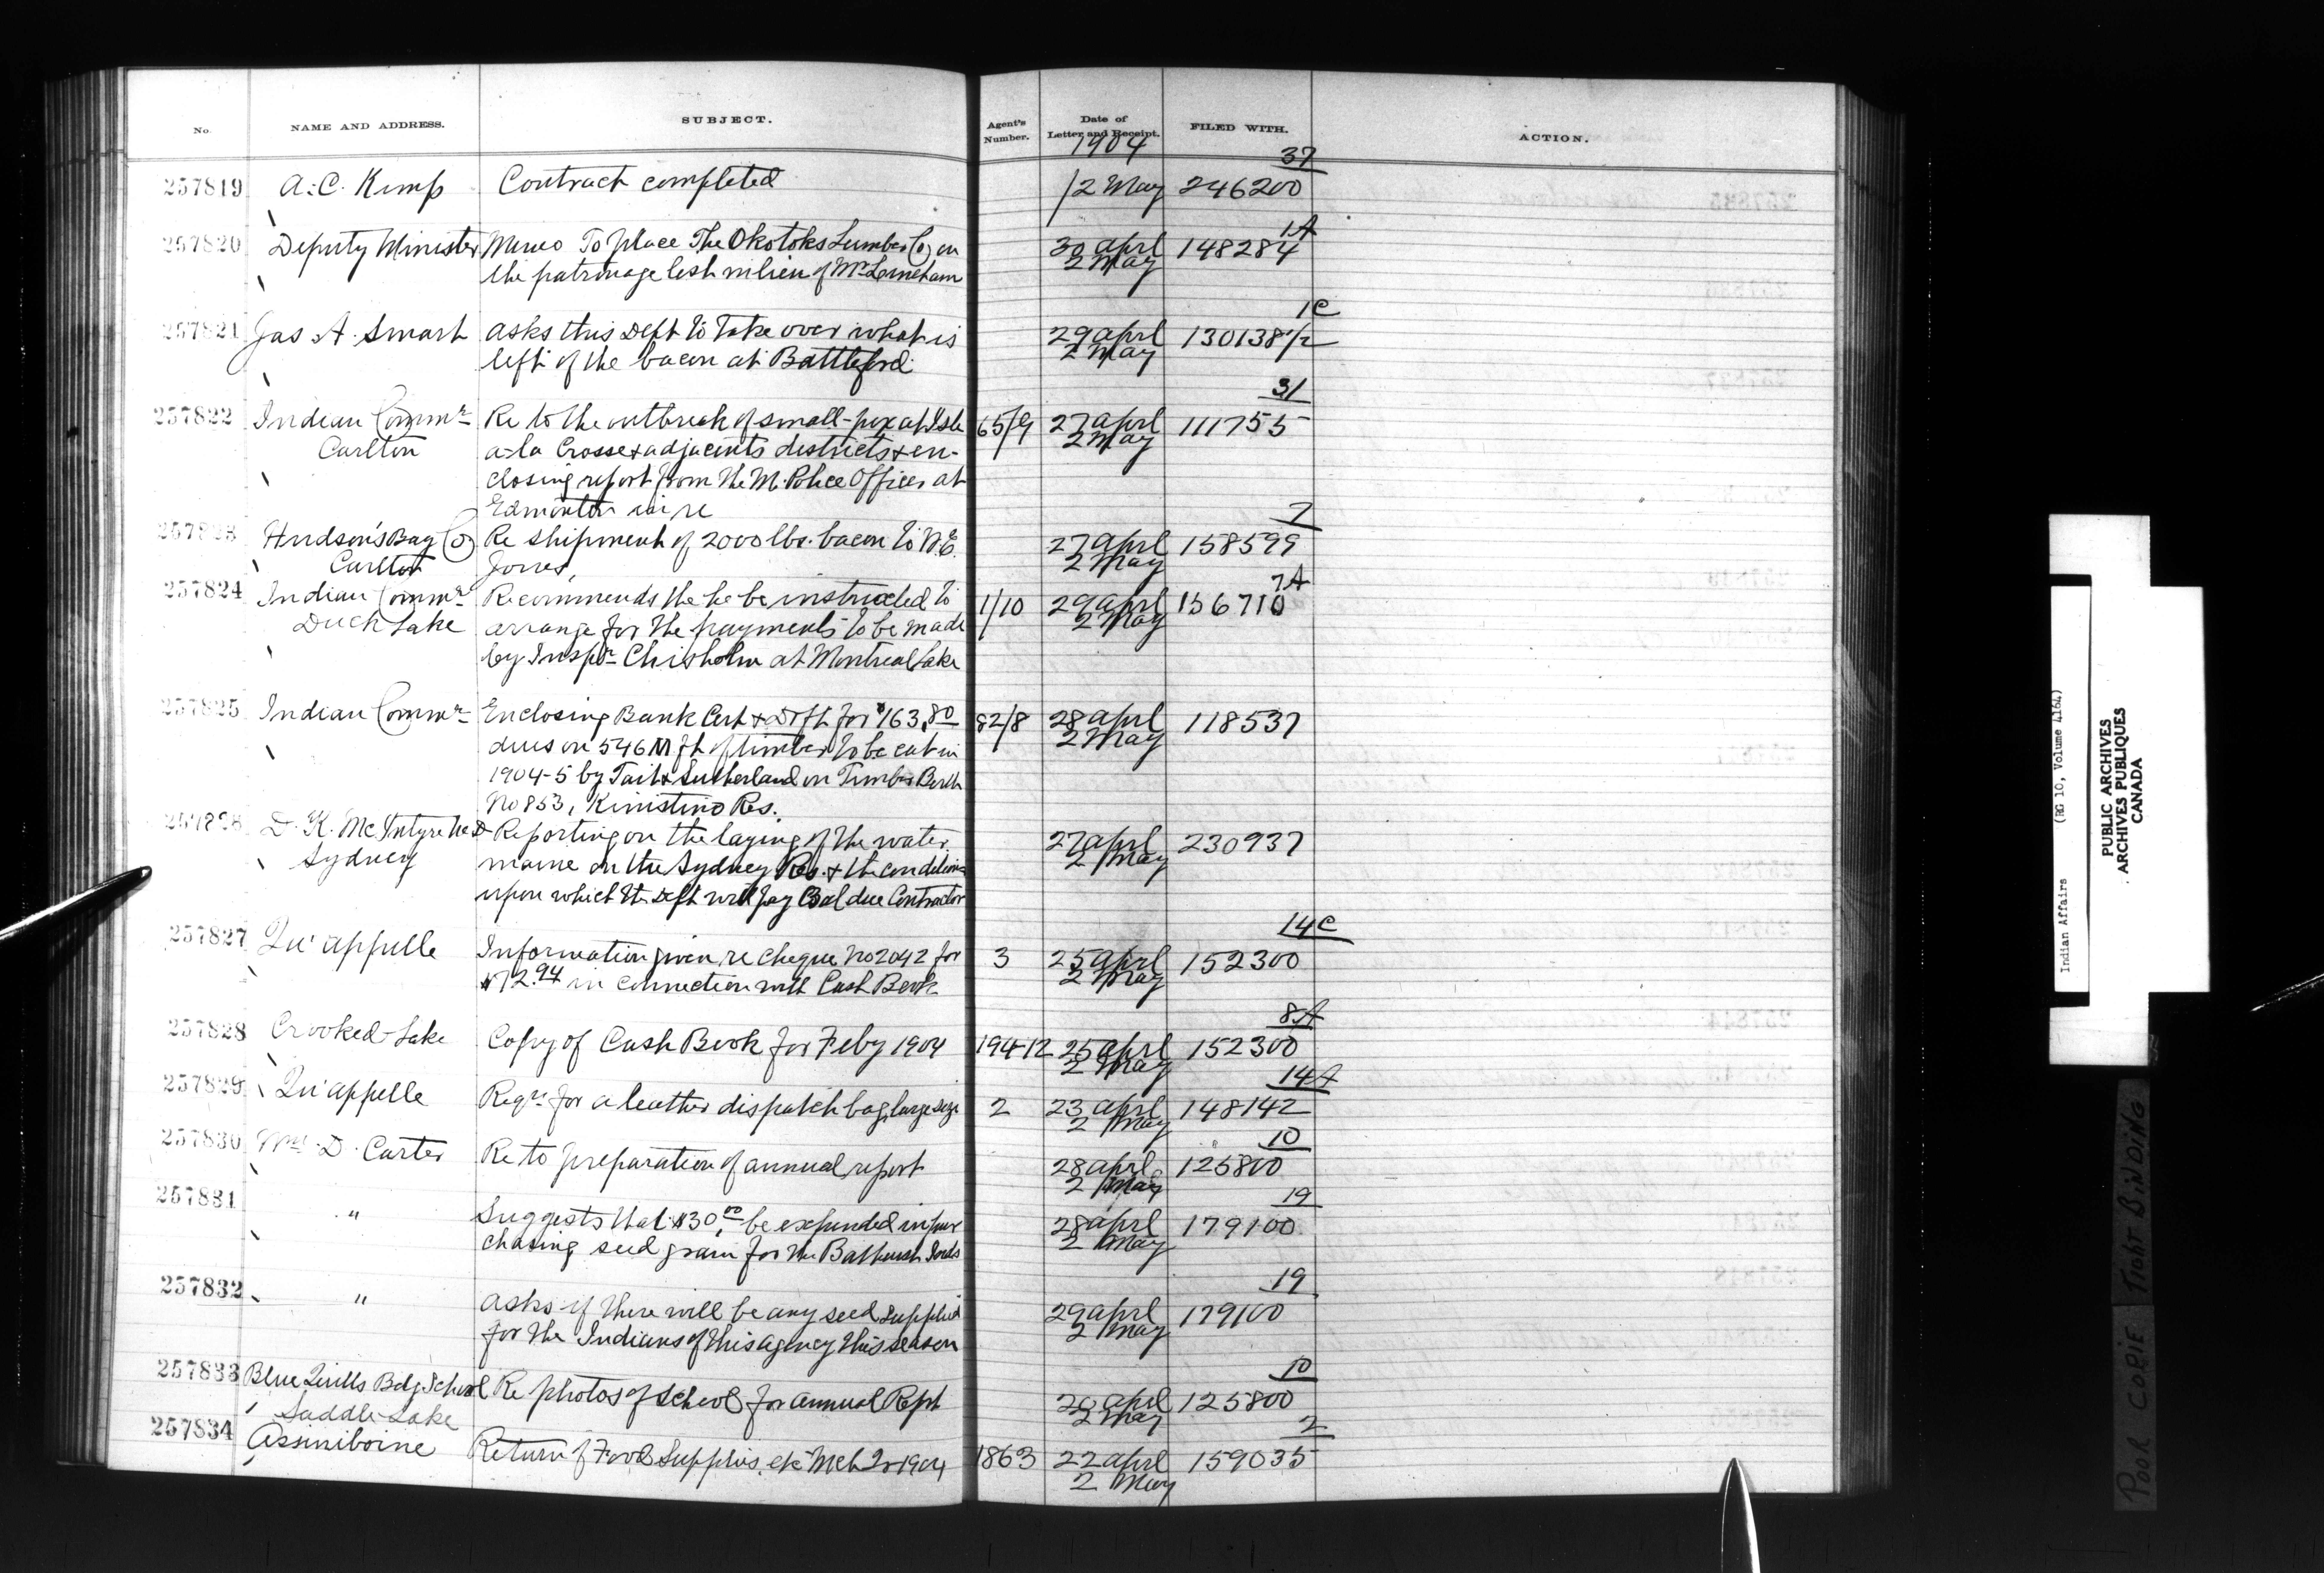 No. NAME AND ADDRESS. SUBJECT. Agent's Number. Date of Letter and Receipt. FILED WITH. ACTION.
1904
37
257819 A. C. Kemp Contract completed /2 May 246200
1A
257820 Deputy Minister Memo To place The Okotoks Lumber Co on 30 april 148284
the patronage list in lieu of Mr Lineham 2 May
1C
257821 Jas A. Smart asks this Dept to take over what is 29 april 130138½
left of the bacon at Battleford 2 May
31
257822 Indian Commr Re to the outbreak of small-pox at Isle 65/9 27 april 111755
Carlton a-la Crosse & adjacents districts & en- 2 May
closing report from the M. Police Officer at
Edmonton in re
7
257823 Hudson's Bay Co Re shipment of 2000 lbs. bacon to W.E. 27 april 158599
Carlton Jones, 2 May
7A
257824 Indian Commr Recommends the he be instructed to 1/10 29 april 156710
Duck Lake arrange for the payments to be made 2 May
by Inspr Chisholm at Montreal Lake
257825 Indian Commr Enclosing Bank Cert & Drft for $163.80 82/8 28 april 118537
dues on 546 M ft of timber to be cut in 2 May
1904-5 by Tait & Sutherland on Timber Berth
No 853, Kinistino Res.
257826 D. K. McIntyre Reporting on the laying of the water 27 april 230937
Sydney maine on the Sydney Res. & the conditions 2 May
upon which the Dept will pay Bal due Contractor
14C
257827 Qu'appelle Information given re cheque No 2042 for 3 25 april 152300
$72.94 in connection with Cash Book 2 May
8A
257828 Crooked Lake Copy of Cash Book for Feby 1904 194-12 25 april 152300
2 May
14A
257829 Qu'appelle Reqn for a leather dispatch bag, large size 2 23 april 148142
2 May
10
257830 Wm D. Carter Re to preparation of annual report 28 april 125800
2 May
19
257831 " Suggests that $30.00 be expended in pur 28 april 179100
chasing seed grain for the Bathurst Inds 2 May
19
257832 " asks if there will be any seed supplied 29 april 179100
for the Indians of this agency this season 2 May
10
257833 Blue Quills Bdg School Re photos of School for annual Rept 20 april 125800
Saddle Lake 2 May
2
257834 Assiniboine Return of Food Supplies, etc Mch Qr 1904 1863 22 april 159035
2 May
Indian Affairs (RG 10, Volume 4164)
PUBLIC ARCHIVES
ARCHIVES PUBLIQUES
CANADA
POOR COPIE TIGHT BINDING